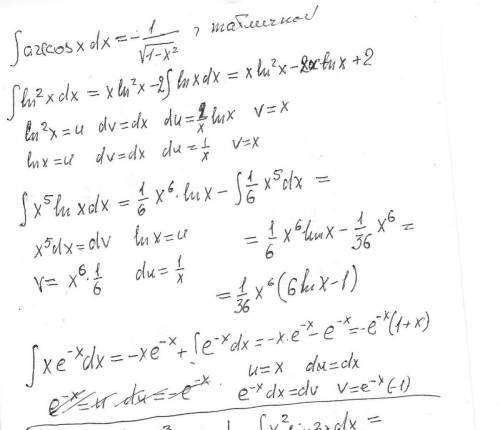 ∫arccos x dx = -1/√(1-x²), табличной
∫ln²x dx = x ln²x - 2∫lnx dx = x ln²x - 2x lnx + 2
ln²x = u dv = dx du = 2/x lnx v = x
lnx = u dv = dx du = 1/x v = x
∫x⁵ ln x dx = 1/6 x⁶ · lnx - ∫1/6 x⁵ dx =
x⁵dx = dv lnx = u = 1/6 x⁶ lnx - 1/36 x⁶ =
v = x⁶ · 1/6 du = 1/x = 1/36 x⁶ (6lnx - 1)
∫xe⁻ˣdx = -xe⁻ˣ + ∫e⁻ˣdx = -x·e⁻ˣ - e⁻ˣ = -e⁻ˣ(1+x)
u = x du = dx
e⁻ˣ = u du = -e⁻ˣ e⁻ˣdx = dv v = e⁻ˣ(-1)